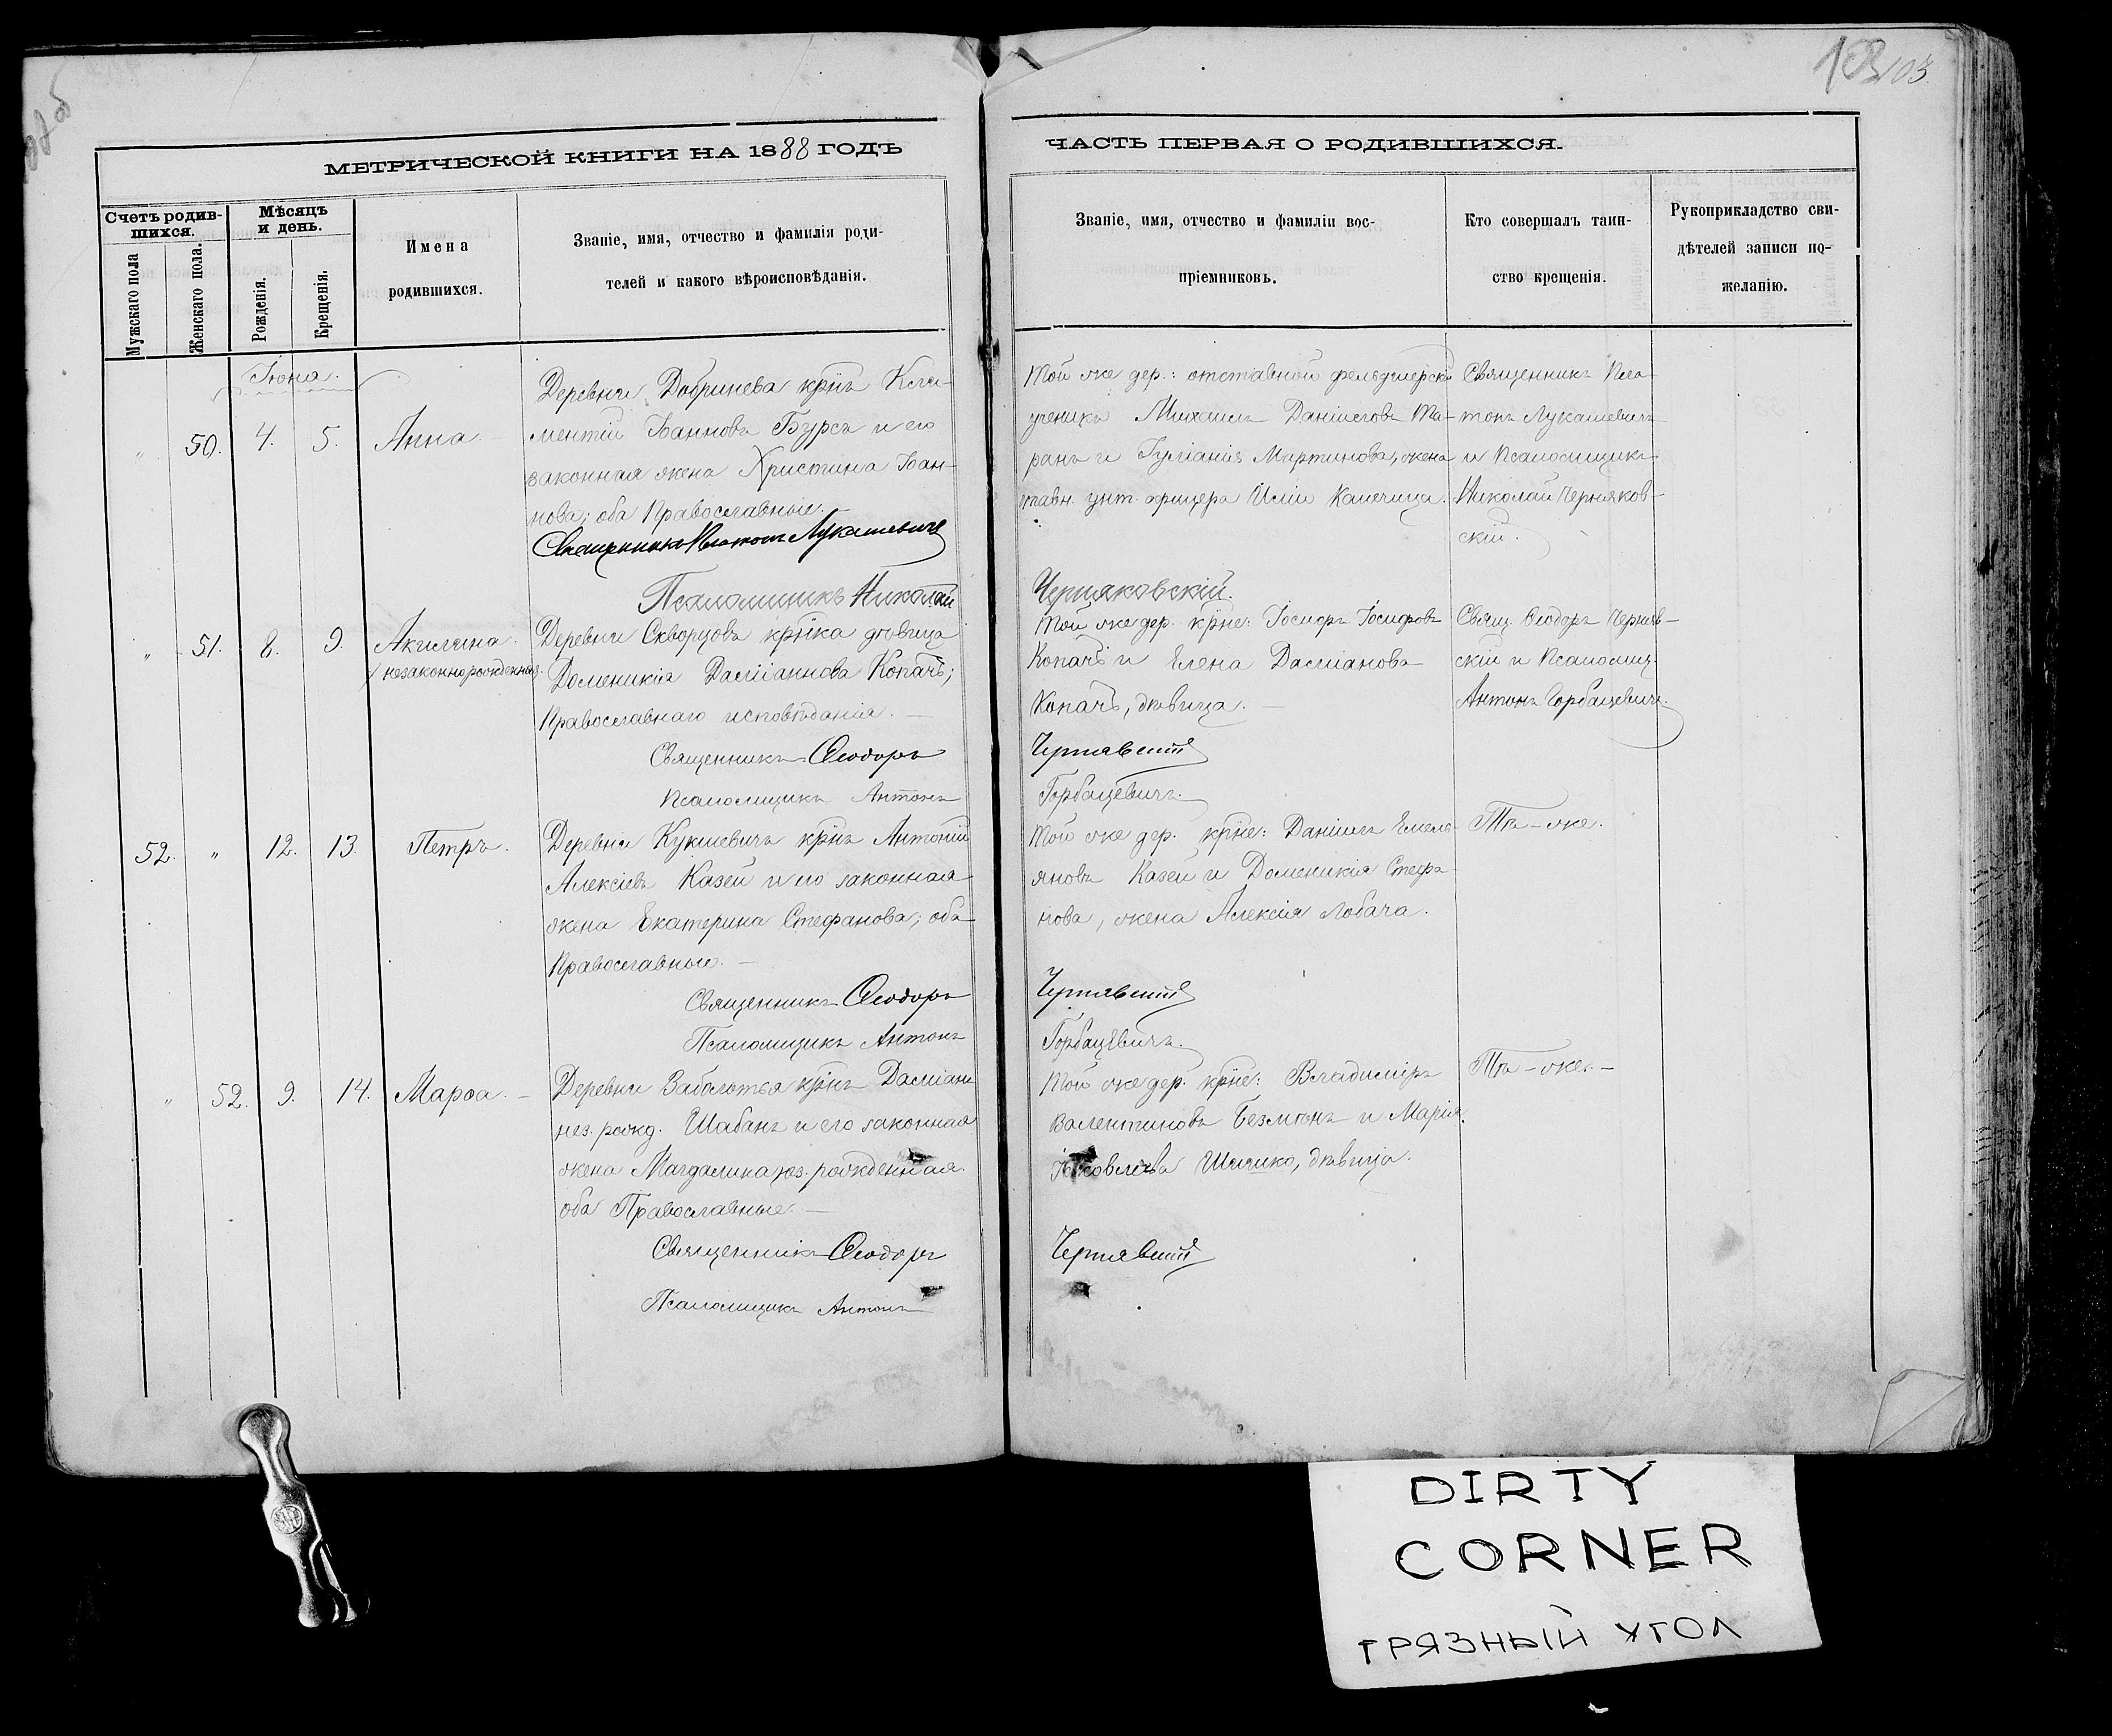 103.
МЕТРИЧЕСКОЙ КНИГИ НА 1888 ГОДЪ
ЧАСТЬ ПЕРВАЯ О РОДИВШИХСЯ.
Счетъ родив-
шихся.
Мужскаго пола
Женскаго пола.
Мѣсяцъ
и день.
Рожденія.
Крещенія.
Имена
родившихся.
Званіе, имя, отчество и фамилія роди-
телей и какого вѣроисповѣданія.
Званіе, имя, отчество и фамиліи вос-
пріемниковъ.
Кто совершалъ таин-
ство крещенія.
Рукоприкладство сви-
дѣтелей записи по-
желанію.
Іюня.
" 50. 4. 5. Анна.
Деревни Добринева крнъ Кли-
ментій Іоанновъ Бурса и его
законная жена Христина Іоан-
нова; оба Православные.
Священникъ Платонъ Лукашевичъ
Псаломщикъ Николай
Той же дер.: отставной фельдшерскій
ученикъ Михаилъ Даніиловъ Та-
ранъ и Іуліанія Мартинова, жена
унт. офицера Иліи
Черняковскій.
Священникъ Пла-
тонъ Лукашевичъ
и Псаломщикъ
Николай Черняков-
скій.
" 51. 8. 9. Акилина.
/незаконнорожденная
Деревни Скворцовъ крнка дѣвица
Доменикія Даміаннова Копачъ;
Православнаго исповѣданія. —
Священникъ Ѳеодоръ
Псаломщикъ Антонъ
Той же дер. крне: Іосифъ Іосифовъ
Копачъ и Елена Даміанова
Копачъ, дѣвица. —
Чернявскій
Горбацевичъ.
Свящ. Ѳеодоръ Черняв-
скій и Псаломщ.
Антонъ Горбацевичъ.
52. " 12. 13. Петръ.
Деревни Кукшевичъ крнъ Антоній
Алексіевъ Казей и его законная
жена Екатерина Стефанова; оба
Православные. —
Священникъ Ѳеодоръ
Псаломщикъ Антонъ
Той же дер. крне: Даніилъ Емель-
яновъ Казей и Доменикія Стефа-
нова, жена Алексія Лобача.
Чернявскій
Горбацевичъ.
Тѣ-же.
" 52. 9. 14. Марѳа. —
Деревни Заболотья крнъ Даміанъ
нез. рожд. Шабанъ и его законная
жена Магдалина нез. рожденная.
оба Православные. —
Священникъ Ѳеодоръ
Псаломщикъ Антонъ
Той же дер. крне: Владиміръ
Валентиновъ Безмѣнъ и Марія
Іаковлева Шишко, дѣвица.
Чернявскій
Тѣ-же. —
DIRTY
CORNER
ГРЯЗНЫЙ УГОЛ